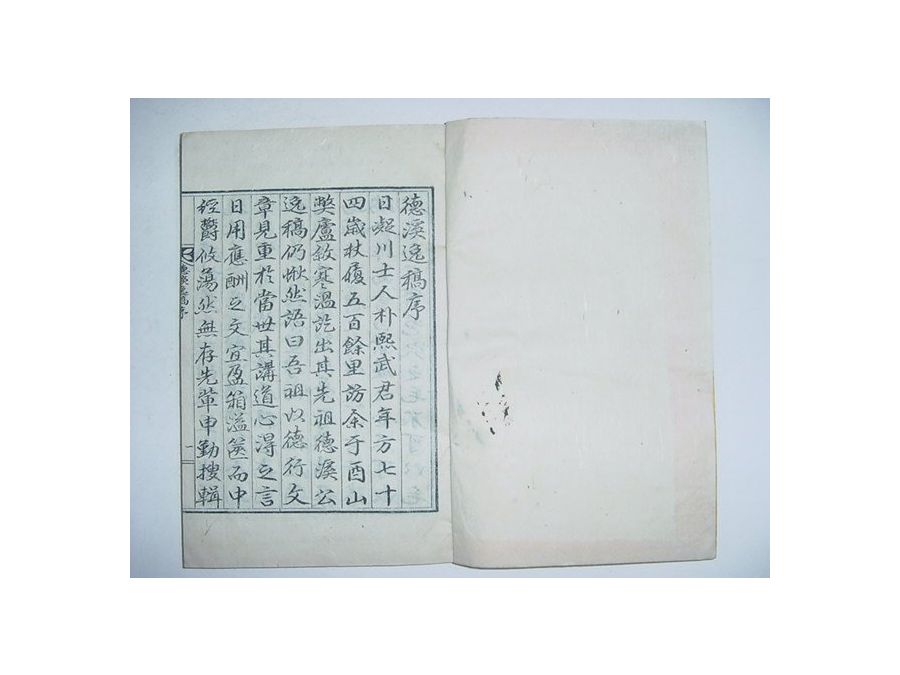 德溪逸稿序
日凝川士人朴熙武君年方七十
四歲杖屨五百餘里訪余于酉山
弊廬敘寒溫訖出其先祖德溪公
逸稿仍愀然語曰吾祖以德行文
章見重於當世其講道心得之言
日用應酬之文宜盈箱溢篋而中
經鬱攸蕩然無存先輩申勤搜輯
德溪逸稿序
一